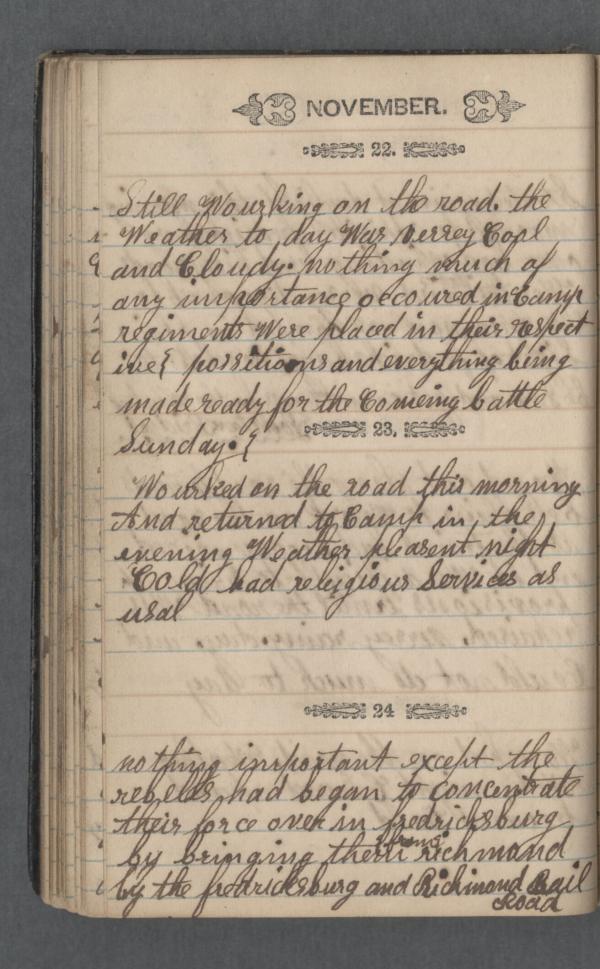 NOVEMBER.
22.
Still Wourking on the road. the
Weather to day Was verrey Cool
and Cloudy. nothing much of
any importance occoured in Camp
regiments Were placed in their respect
ive{ possitions and everything being
made ready for the Comeing battle
23.
Sunday. {
Wourked on the road this morning
And returned to Camp in the
evening Weather pleasent night
Cold had religious Services as
usal
24
nothing important except the
rebells had began to concentrate
their force over in fredricksburg
by bringing them from richmond
by the fredricksburg and Richmond Rail
Road